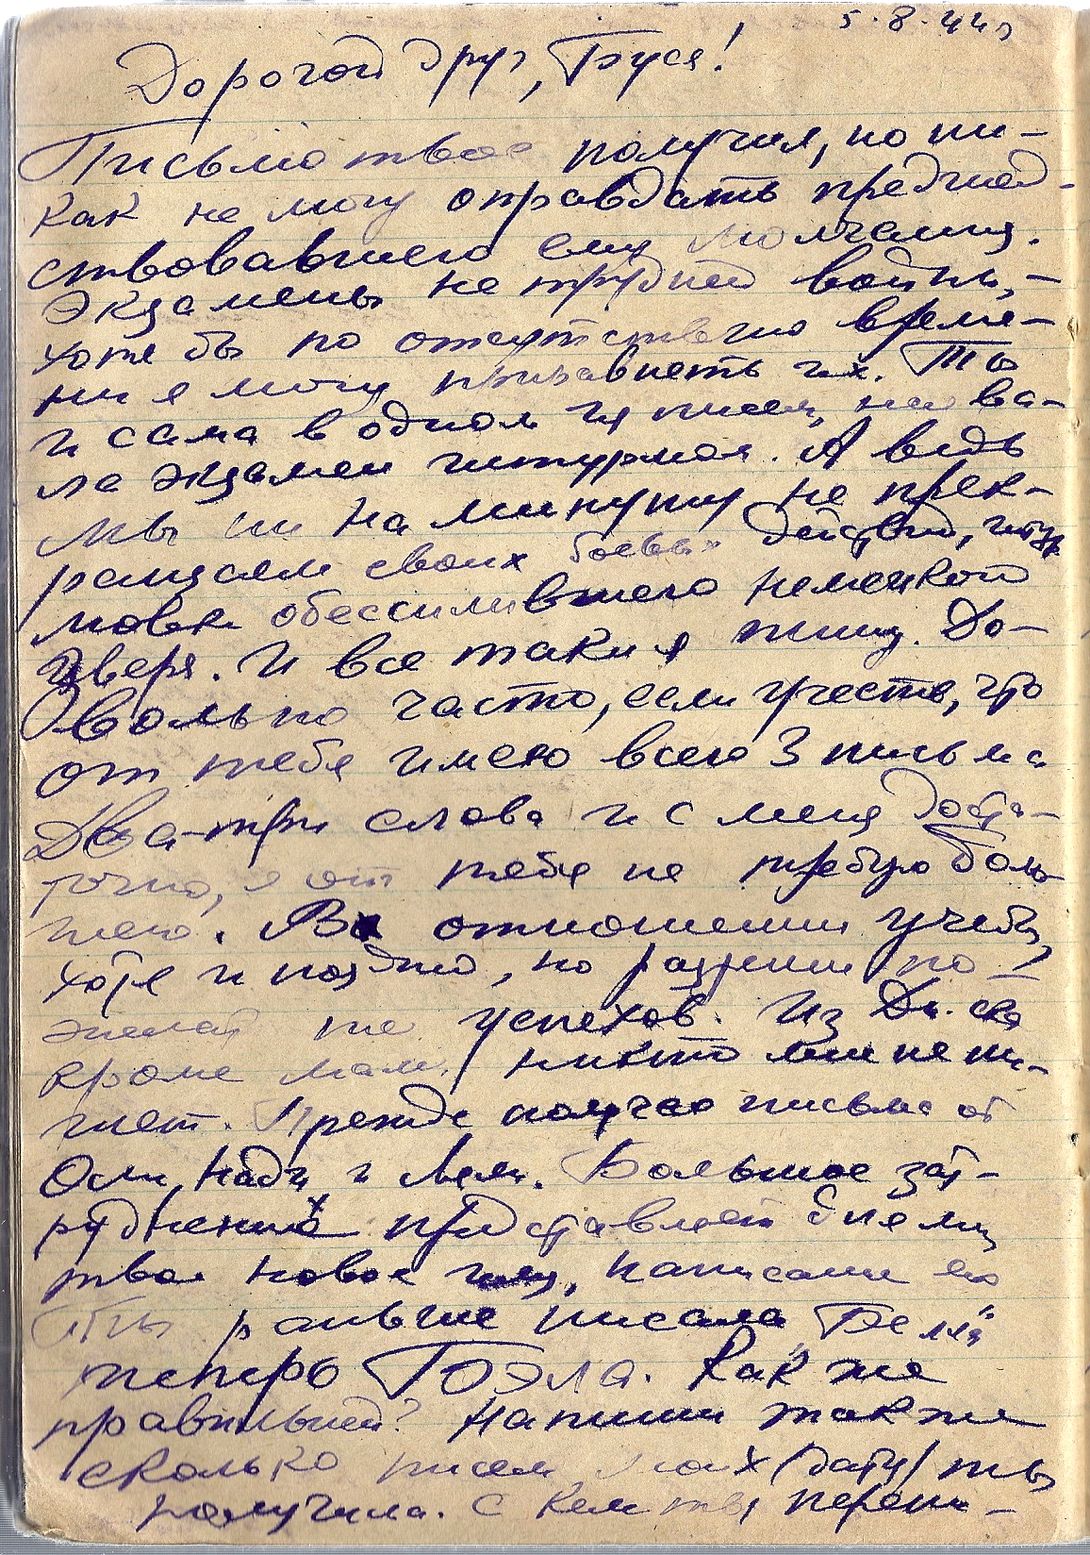 5.8.44г
Дорогой друг, Буся!
Письмо твое получил, но ни-
как не могу оправдать предшед-
ствовавшего ему молчания.
Экзамены не трудней войны, -
хотя бы по отсутствию време-
ни я могу приравнять их. Ты
и сама в одном из писем назва-
ла экзамен штурмом. А ведь
мы ни на минуту не прек-
ращаем своих боевых действий, штур
мовки обессилившего немецкого
зверя. И все таки я пишу. До-
вольно часто, если учесть, что
от тебя имею всего 3 письма
Два-три слова и с меня доста-
точно, я от тебя не требую боль
шего. В отношении учебы,
хотя и поздно, но разреши по-
желать те успехов. Из
кроме мамы, никто мне не пи-
шет. Прежде получаю письма от
Оли, Нади и Лели. Большое зат-
руднение представляет для мня
твое новое имя, написание его
Ты раньше писала "Белла"
теперь Бэла. Как же
правильней? Напиши также
сколько писем моих /дату/ ты
получила. С кем ты перепи-